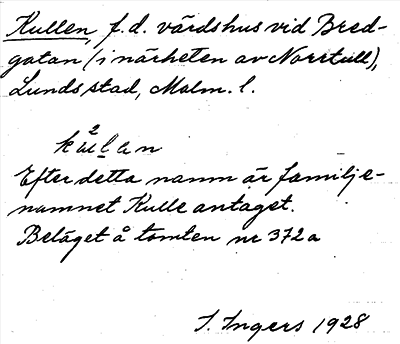 Kullen, f.d. värdshus vid Bred-
gatan (i närheten av Norrtull),
Lunds stad, Malm. l.
2
kulan
Efter detta namn är familje-
namnet Kulle antaget.
Beläget å tomten nr 372a
I. Ingers 1928